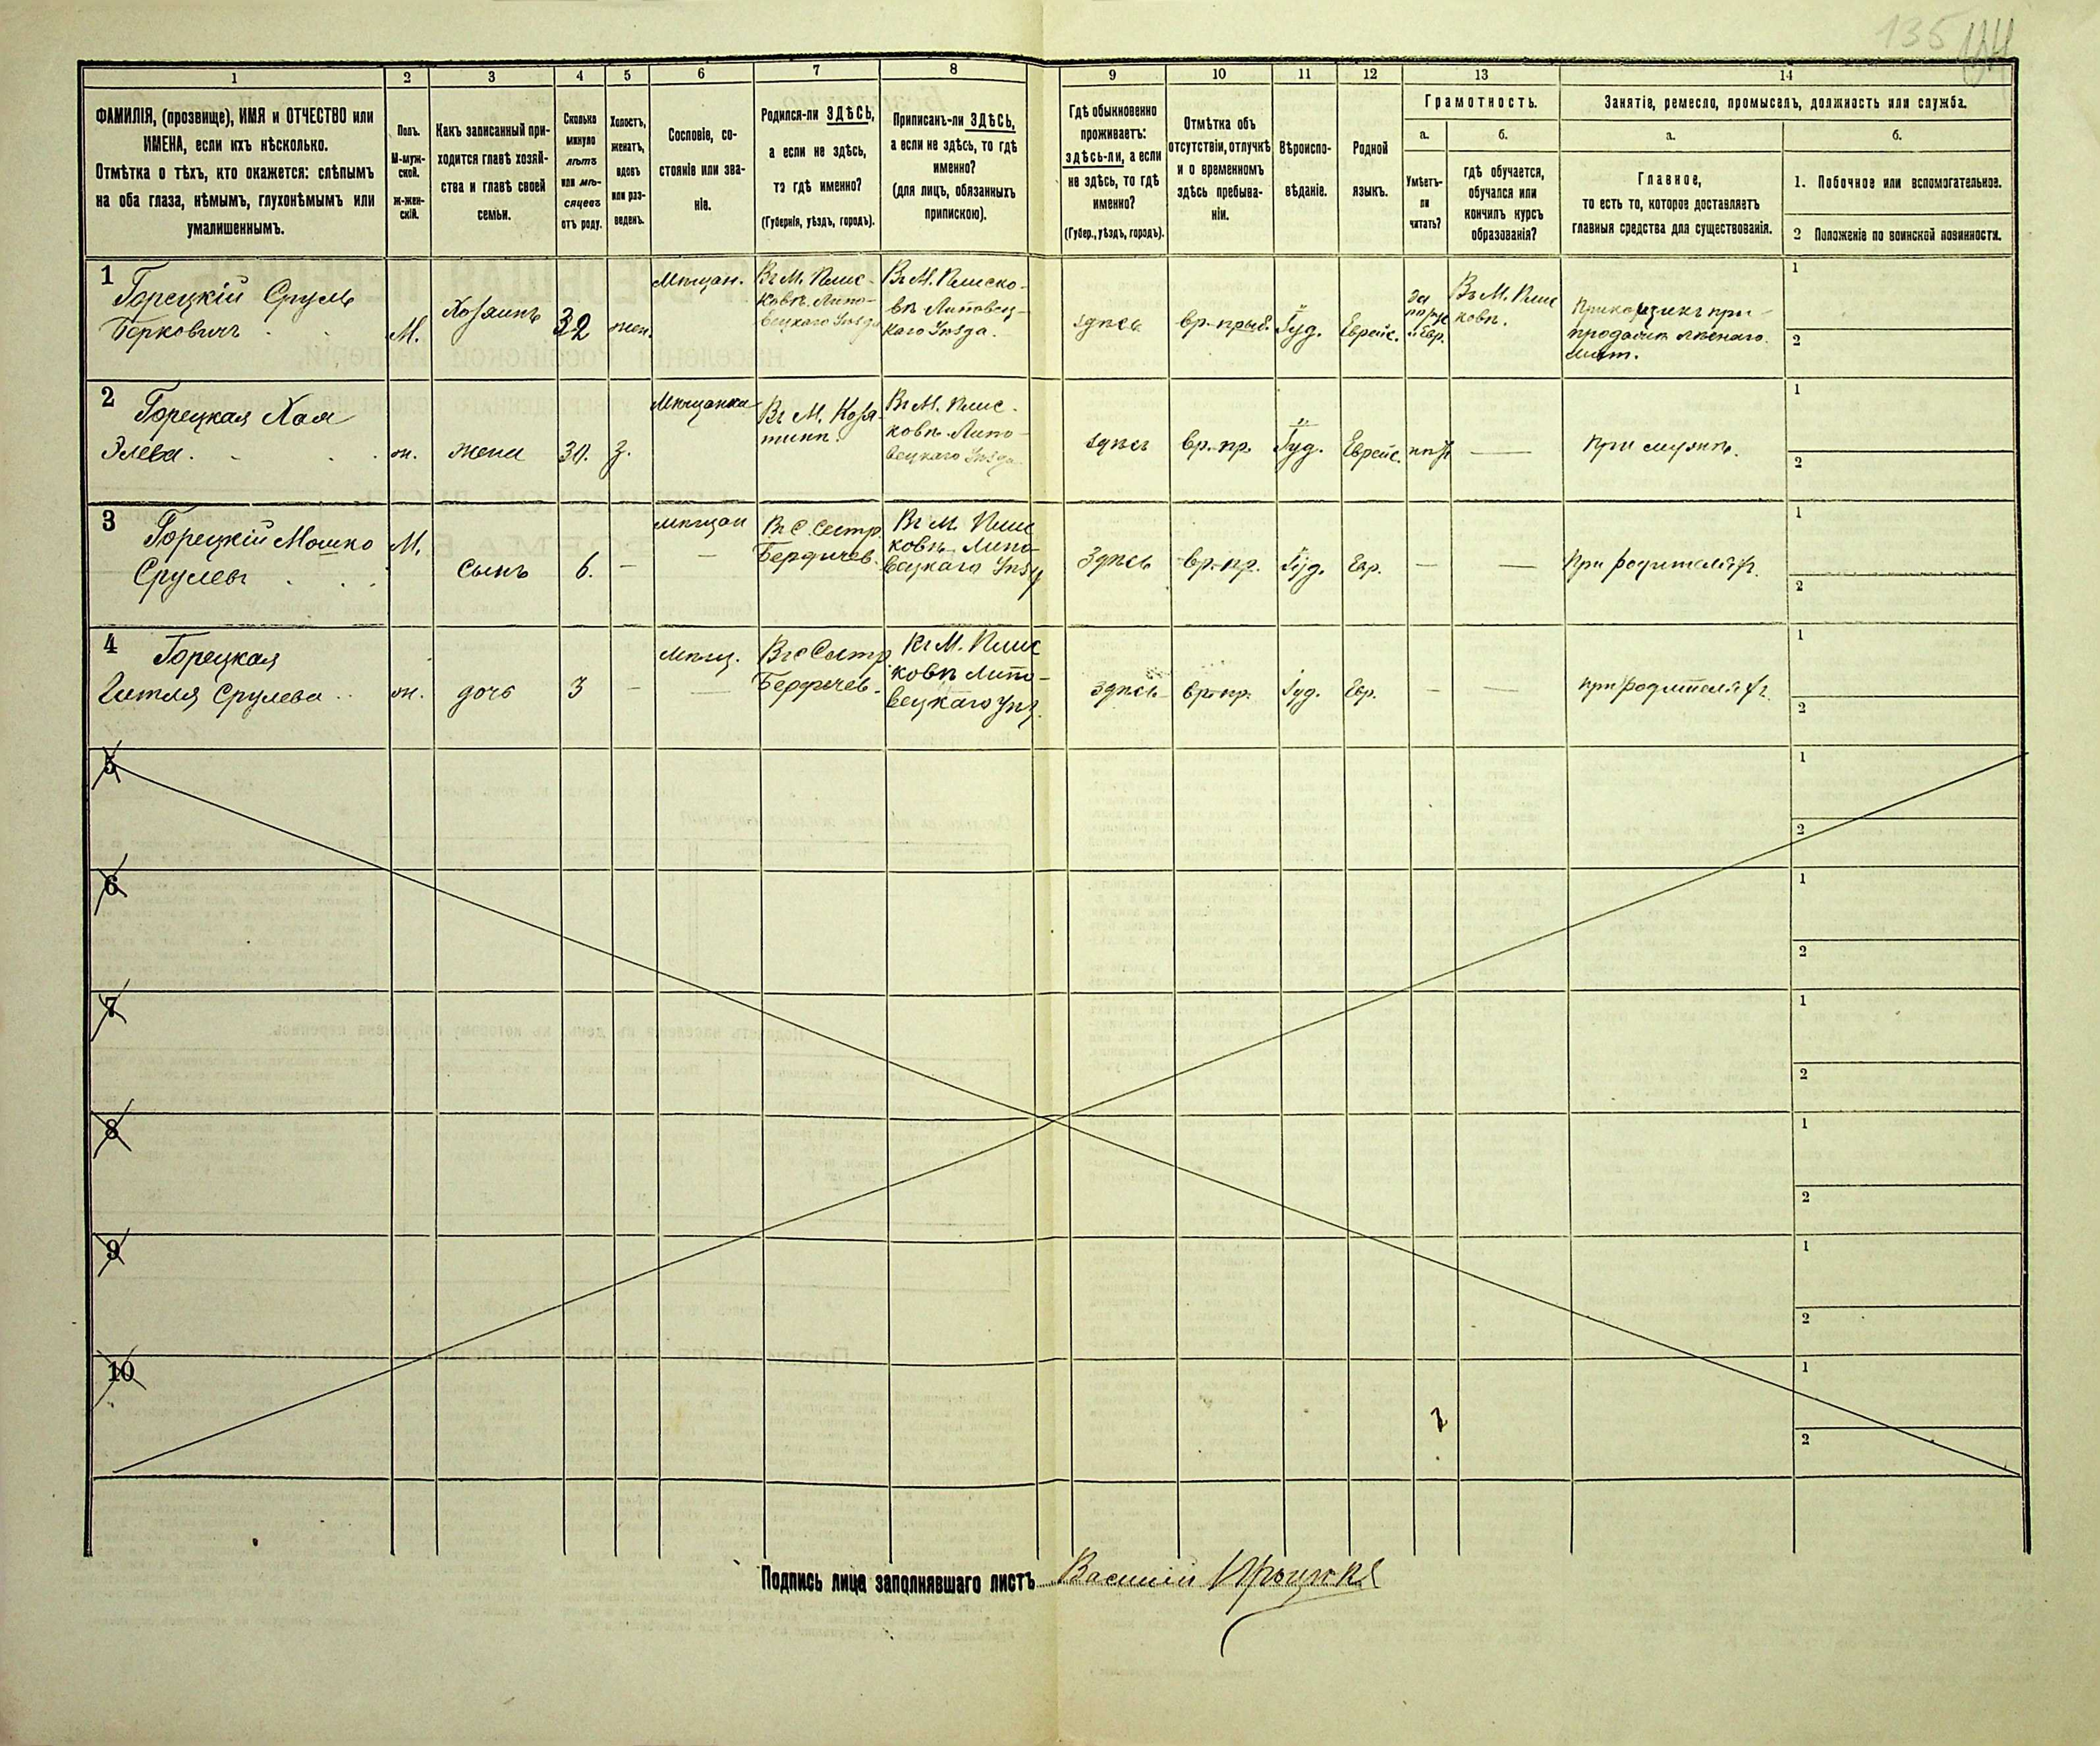 135
1 2 3 4 5 6 7 8 9 10 11 12 13 14
ФАМИЛІЯ, (прозвище), ИМЯ и ОТЧЕСТВО или
ИМЕНА, если ихъ нѣсколько.
Отмѣтка о тѣхъ, кто окажется: слѣпымъ
на оба глаза, нѣмымъ, глухонѣмымъ или
умалишеннымъ.
Полъ.
М-муж-
ской.
ж-жен-
скій.
Какъ записанный при-
ходится главѣ хозяй-
ства и главѣ своей
семьи.
Сколько
минуло
лѣтъ
или мѣ-
сяцевъ
отъ роду.
Холостъ,
женатъ,
вдовъ
или раз-
веденъ.
Сословіе, со-
стояніе или зва-
ніе.
Родился-ли ЗДѢСЬ,
а если не здѣсь,
то гдѣ именно?
(Губернія, уѣздъ, городъ).
Приписанъ-ли ЗДѢСЬ,
а если не здѣсь, то гдѣ
именно?
(для лицъ, обязанныхъ
припискою).
Гдѣ обыкновенно
проживаетъ:
здѣсь-ли, а если
не здѣсь, то гдѣ
именно?
(Губер., уѣздъ, городъ).
Отмѣтка объ
отсутствіи, отлучкѣ
и о временномъ
здѣсь пребыва-
ніи.
Вѣроиспо-
вѣданіе.
Родной
языкъ.
Грамотность.
а.
Умѣетъ-
ли
читать?
б.
гдѣ обучается,
обучался или
кончилъ курсъ
образованія?
Занятіе, ремесло, промыселъ, должность или служба.
а.
Главное,
то есть то, которое доставляетъ
главныя средства для существованія.
б.
1. Побочное или вспомогательное.
2 Положеніе по воинской повинности.
1
Горецкій Сруль
Берковичъ
М.
Хозяинъ
32
жен.
Мѣщан.
Въ М. Плис-
ковѣ. Липо-
вецкаго Уѣзда
Въ М. Плиско-
вѣ Липовец-
каго Уѣзда.
здѣсь
вр-прыб.
Іуд.
Еврейс.
Въ М. Плис
ковѣ.
Прикащикъ при
продажѣ лѣснаго
1
2
2
Горецкая Хая
Элева
ж.
жена
30.
з.
Мѣщанка
Въ М. Козя-
тинѣ.
Въ М. Плис-
ковѣ Липо-
вецкаго Уѣзда
здѣсь
вр-пр.
Іуд.
Еврейс.
—
При мужѣ.
1
2
3
Горецкій Мошко
Срулевъ
М.
сынъ
6.
—
мѣщан
—
Въ С. Сестр.
Бердичев.
Въ М. Плис
ковѣ Липо-
вецкаго Уѣзд
Здѣсь
вр-пр.
Іуд.
Евр.
—
—
При родителяхъ.
1
2
4
Горецкая
Гитля Срулева
ж.
дочь
3
—
мѣщ.
—
Въ С Сестр.
Бердичев.
Въ М. Плис
ковѣ Липо-
вецкаго Уѣз.
здѣсь
вр-пр.
Іуд.
Евр.
—
—
при родителяхъ.
1
2
5
1
2
6
1
2
7
1
2
8
1
2
9
1
2
10
1
2
Подпись лица заполнявшаго листъ Василій